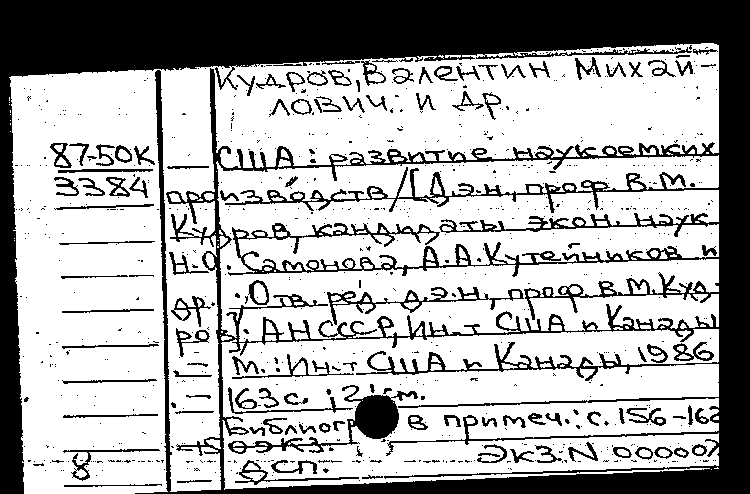 Кудров, Валентин Михай-
лович. и др.
87-50К США : развитие наукоемких
3384 производств /[Д.э.н., проф. В.М.
Кудров, кандидаты экон. наук
Н.О. Самонова, А.А. Кутейников и
др. ; Отв. ред. д.э.н., проф. В.М. Куд-
ров]; АН СССР, Ин-т США и Канады
.— М. : Ин-т США и Канады, 1986
.— 163 с. ; 21 см.
Библиогр. в примеч.: с. 156-162
150 экз. Экз. N 000007
8 ДСП.